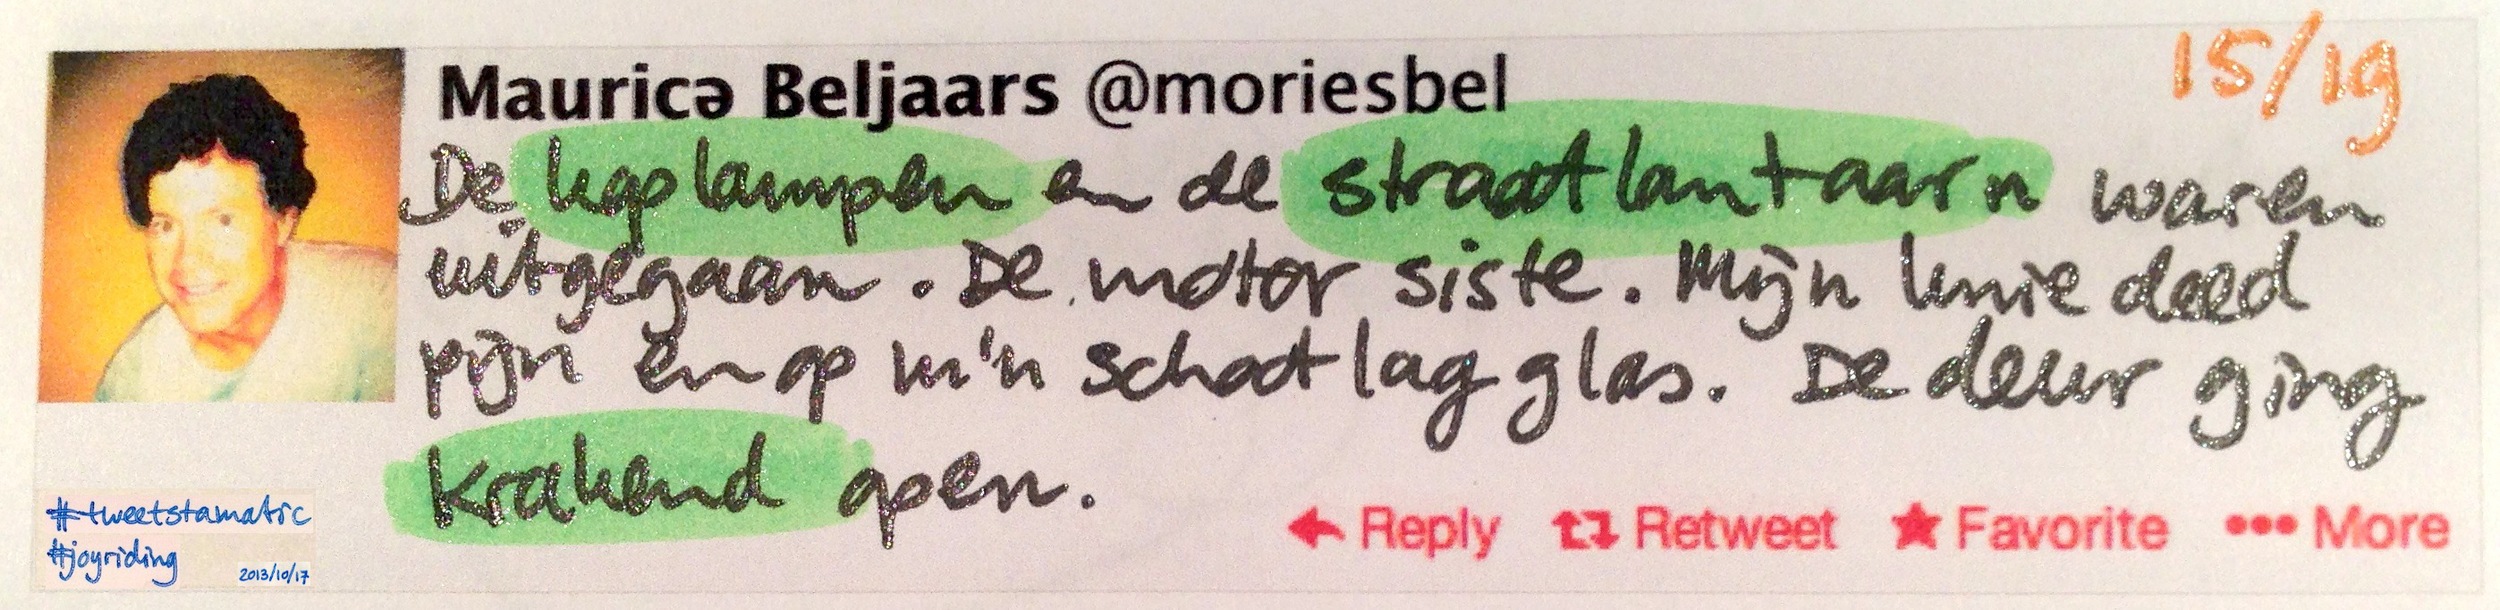 Mauricə Beljaars @moriesbel
15/19
De koplampen en de straatlantaarn waren
uitgegaan. De motor siste. Mijn knie deed
pijn en op m'n schoot lag glas. De deur ging
krakend open.
#tweetstamatic
#joyriding
2013/10/17
Reply Retweet Favorite More